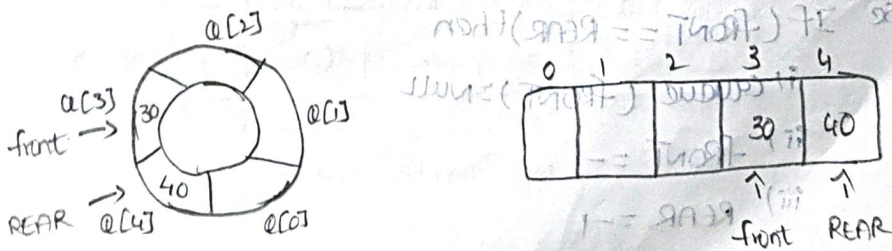 Q[2]
Q[3]
30
Q[1]
front →
40
REAR →
Q[4]
Q[0]
0 1 2 3 4
30 40
front REAR